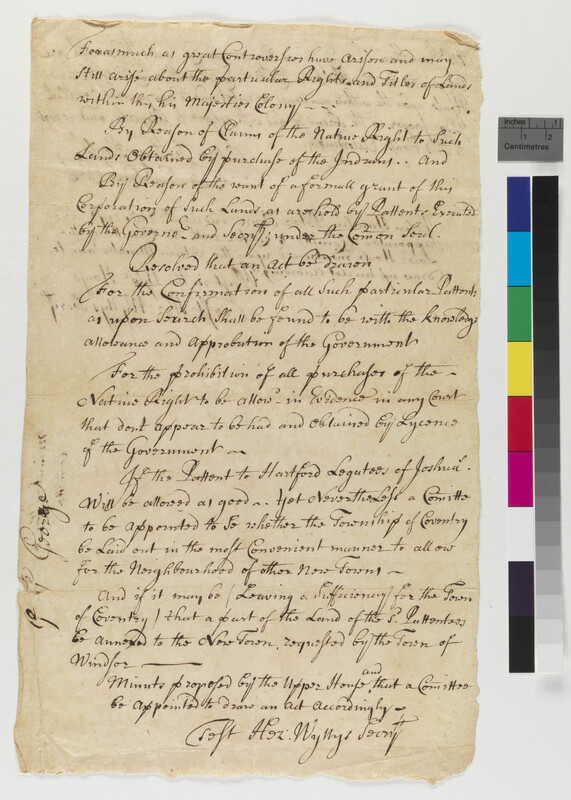 Forasmuch as great Controversies have Arisen and may
Still arise about the particular Rights and Titles of Lands
within this his Majesties Colony
By Reason of Claims of the Native Right to Such
Lands Obtained by purchase of the Indians.. And
By Reason of the want of a formall grant of this
Corporation of Such Lands as are hold by Pattents Executed
by the Governor and Secrty; under the Comon Seal.
Resolved that an Act be drawn
For the Confirmation of all Such particular Pattents
as upon Search Shall be found to be with the Knowledge
allowance and Approbation of the Government
For the prohibition of all purchases of the
Native Right to be allowd in Evidence in any Court
that dont Appear to be had and Obtained by Lycence
of the Government
If the Pattent to Hartford Legatees of Joshua.
Will be allowed as good.. Yet Nevertheless a Comitte
to be appointed to Se whether the Township of Coventry
be Laid out in the most Convenient manner to allow
for the Neighbourhood of other New Towns
And if it may be (Leaving a Sufficiency for the Town
of Coventry) that a part of the Land of the Sd. Pattentees
be annexed to the New Town, requested by the Town of
Windsor
Minuts proposed by the Upper House, and that a Comittee
be Appointed to draw an Act Accordingly
Test Hez: Wyllys Secry
George
inches
1
2
Centimetres